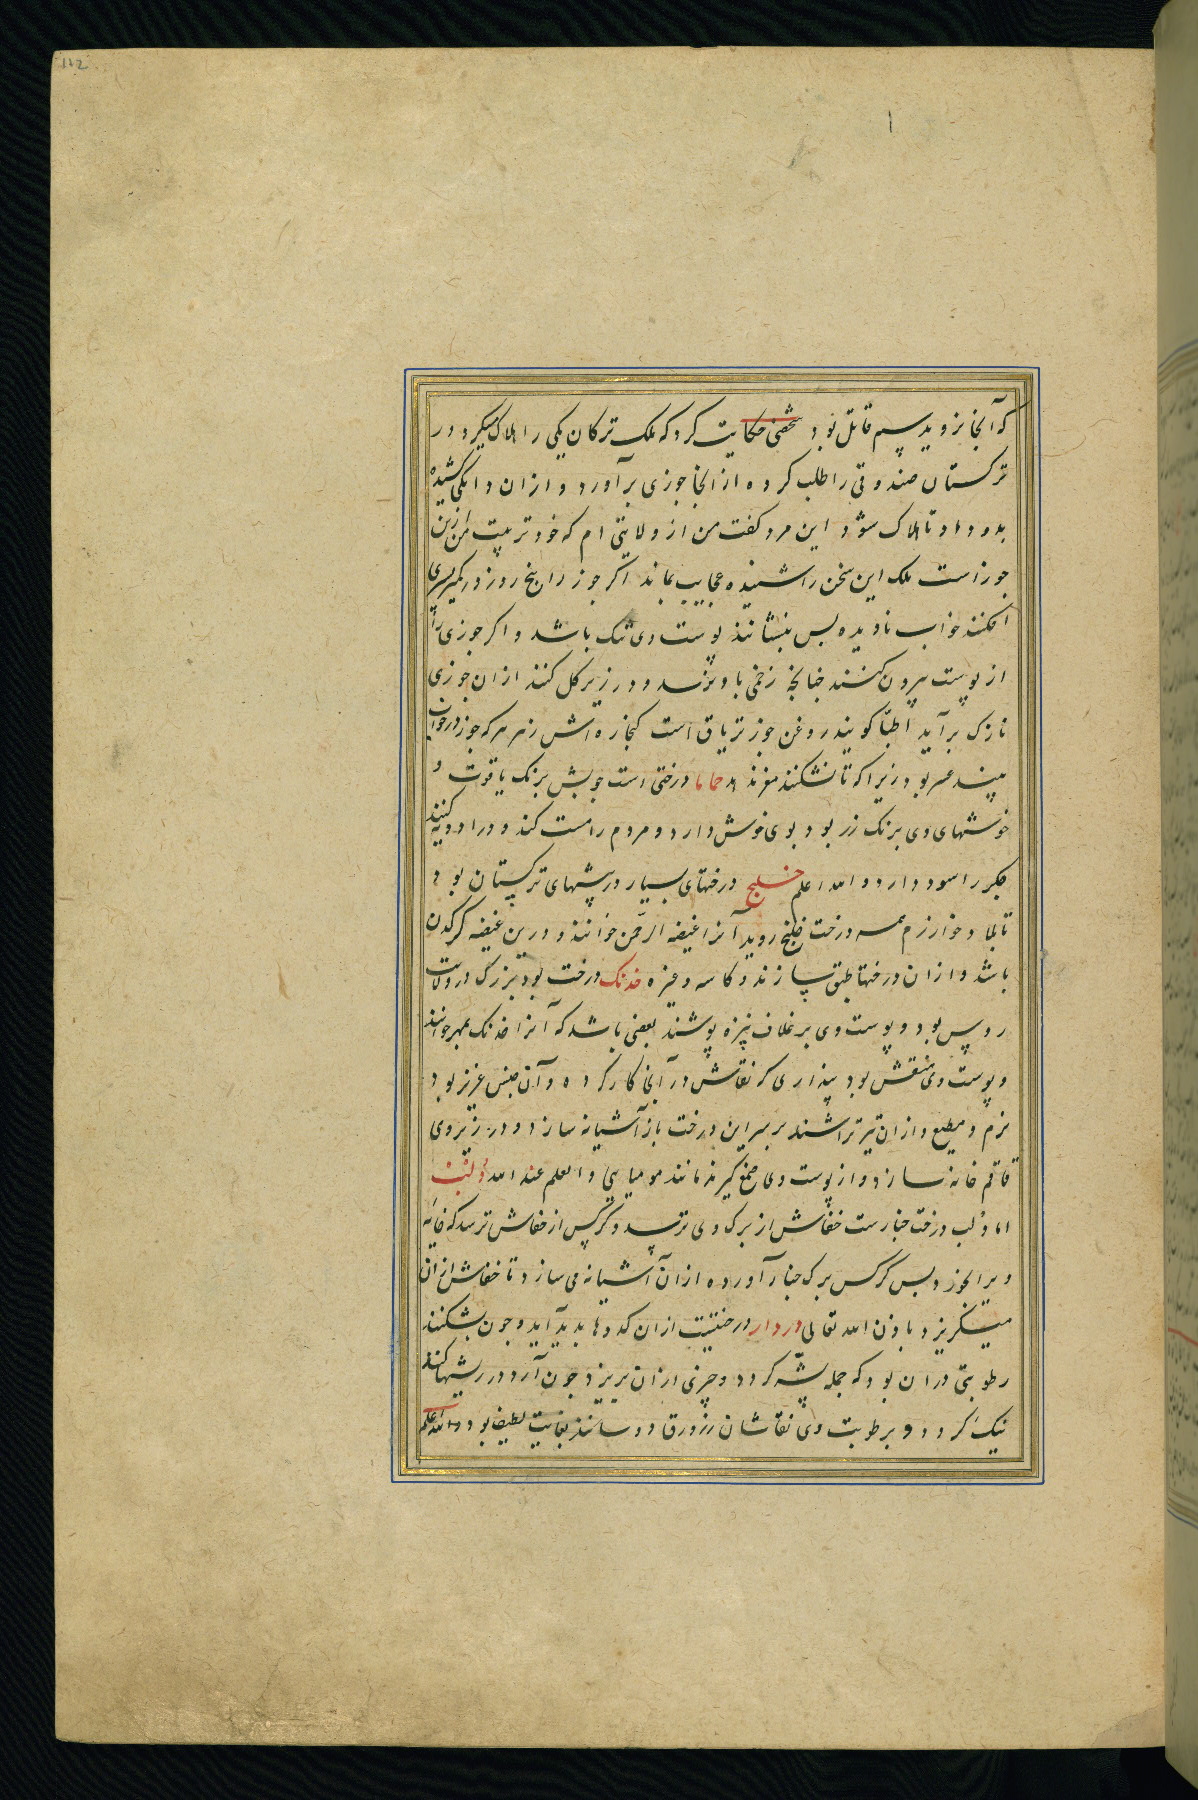 112
که آنجا بروید سم قاتل بود شخصی حکایت کرد که ملک ترکان یکی را هلاک میکرد در
ترکستان صندوقی را طلب کرده از انجا جوزی برآورد و ازان دانکی کشیده
بدو داد تا هلاک شود این مرد کفت من از ولایتی ام که خود تربیت من ازین
جوزاست ملک این سخن را شنیده عجایب بماند اکر جوز را پنج روز در
افکنند خواب نادیده پس بنشانند پوست وی تنک باشد و اکر جوزی را
از پوست بیرون کنند چنانچه زخمی باو نرسد و در زیر کل کنند ازان جوزی
نازک برآید اطبا کویند روغن جوز تریاق است کنجاره اش زهر هر که جوز در خواب
بیند عسر بود زیرا که تا نشکنند مغز ندهد حماما درختی است چوبش برنک یاقوت و
خوشهای وی برنک زر بود بوی خوش دارد و مردم را مست کند و در ادویه کنند
جکر را سود دارد والله اعلم خلنج درختهای بسیار در بیشهای ترکستان بود
تا بلاد خوارزم همه درخت خلنج روید آنرا غیضه الرحمن خوانند و درین غیضه کرکدن
باشد و ازان درختها طبق سازند و کاسه و غیره خدنک درخت بود بزرک در ولایت
روس بود و پوست وی بر غلاف نیزه پوشند بعضی باشد که آنرا خدنک بمهر خوانند
و پوست وی منقش بود پنداری که نقاش در آنجا کار کرده و آن جنس عزیز بود
نرم و مطیع و ازان تیر تراشند بر سر این درخت باز آشیانه سازد و در زیر وی
قاقم خانه سازد و از پوست وی صمغ کیرند مانند مومیایی والعلم عند الله دلب
اما دلب درخت چنارست خفاش از برک وی ترسد و کرکس از خفاش ترسد که خایه
ویرا بخورد پس کرکس برک چنار آورده ازان آشیانه می سازد تا خفاش ازان
میکریزد باذن الله تعالی دردار درختیست ازان کدوها پدید آید و چون بشکنند
رطوبتی دران بود که جمله پشه کردد و چیزی ازان بریزد چون آرد در ریشها کنند
نیک کردد و برطوبت وی نقاشان زرورق دوسانند بغایت لطیف بود والله اعلم